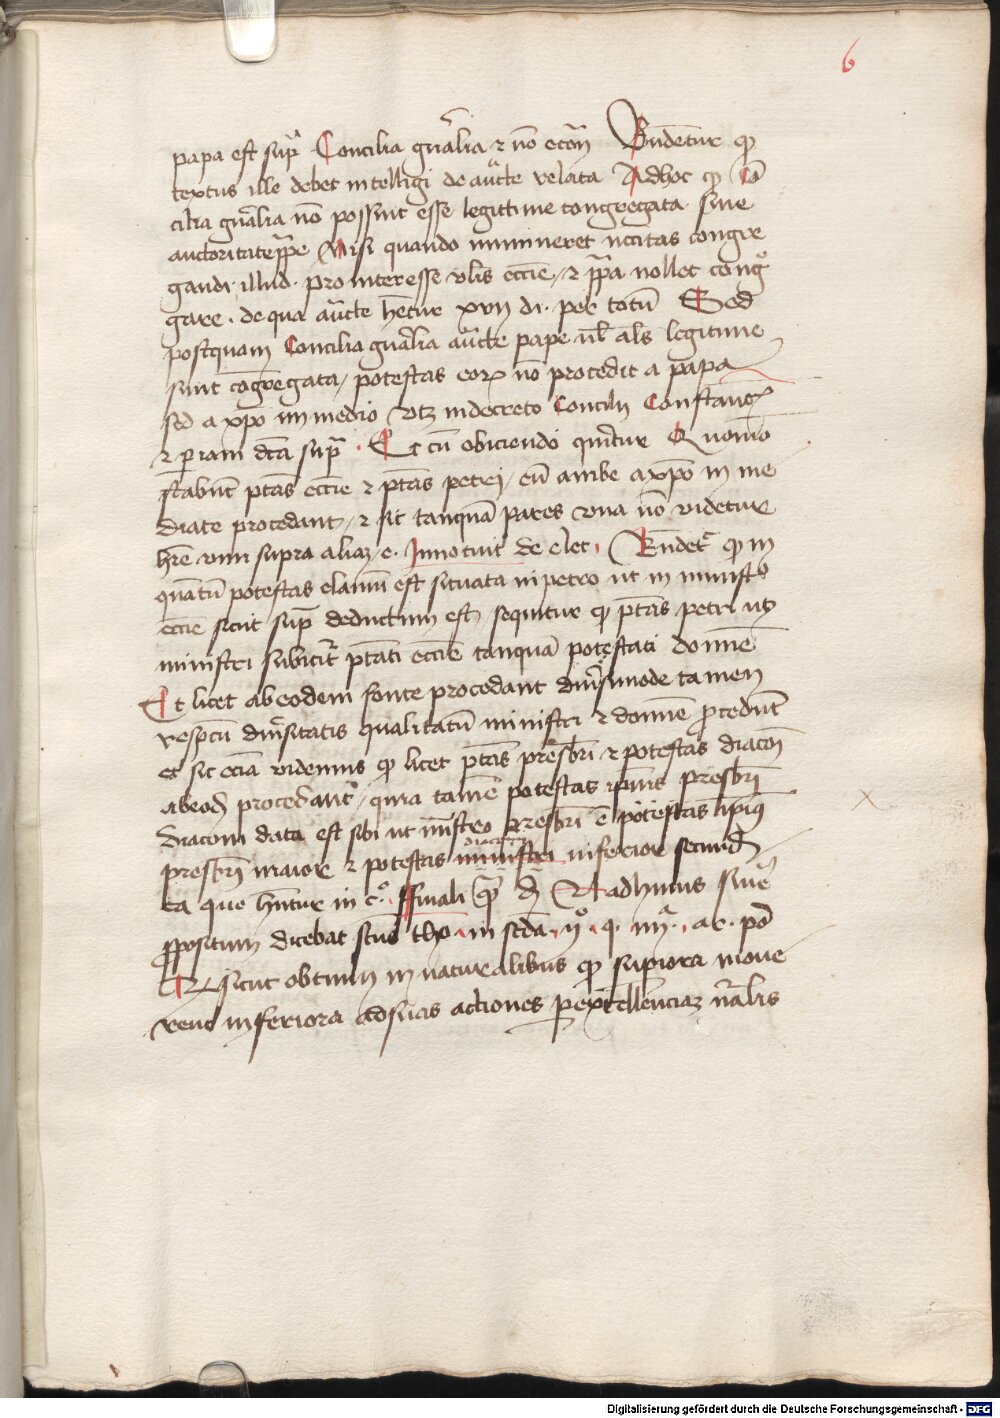 6
papa est sup̄ Concilia gn̄alia ⁊ nō econ̄ Rn̄detur qꝫ
textus ille debet intelligi de auc̄te relata Adhoc qꝫ Cō
cilia gn̄alia nō possint esse legittime congregata sine
auctoritate pp̄e Nisi quando immineret nc̄citas congre
gandi illud pro interesse vlis ecc̄ie ⁊ pp̄a nollet cong̊
gare . de qua auc̄te hētur xvij di. per totū Sed
postquam Concilia gn̄alia auc̄te pape ul̄ als legitime
sint cōgregata / potestas eorꝫ nō procedit a papa
sed a xp̄o immedio vtꝫ in decreto Concilij Constan̄
⁊ ꝑ iam dc̄ā sup̄ . Et cū obiciendo querit̄ur Quomō
stabūt ptās ecc̄ie ⁊ ptās petri / cū ambe a xp̄o in me
diate procedant / ⁊ sic tanquā pares vna nō videtur
hr̄e vim supra aliaꝫ e. Innotuit de elec. Rn̄det̄ qꝫ in
quātū potestas clauiū est situata in petro ut in minist̊
ecc̄ie sicut sup̄ deductum est / sequitur qꝫ ptās petri ut
ministri subicit̄ ptāti ecc̄ie tanquā potestati domīe
Et licet ab eodem fonte procedant diuͬsimode tamen
respc̄tu diuͬsitatis qualitatū ministri ⁊ domīe ꝓcedūt
et sic eciā videmus qꝫ licet ptās presbr̄i ⁊ potestas diacon̄
ab eod̄ procedant̄ / quia tamē potestas ipīus presbr̄i
diaconi data est sibi ut mīstro presbr̄i ē potestas ipīus
presbr̄i maior ⁊ potestas diaconi ministri inferior secund̄
ea que hn̄tur in c̊. finali
ꝓpositum dicebat sc̄us tho . in sc̄da ij̊ . q. . ar. p̄o
sicut obtinet in naturalibus qꝫ supiora moue
rent inferiora ad suas actiones ꝑ excellenciaꝫ n̄alis
Digitalisierung gefördert durch die Deutsche Forschungsgemeinschaft - DFG